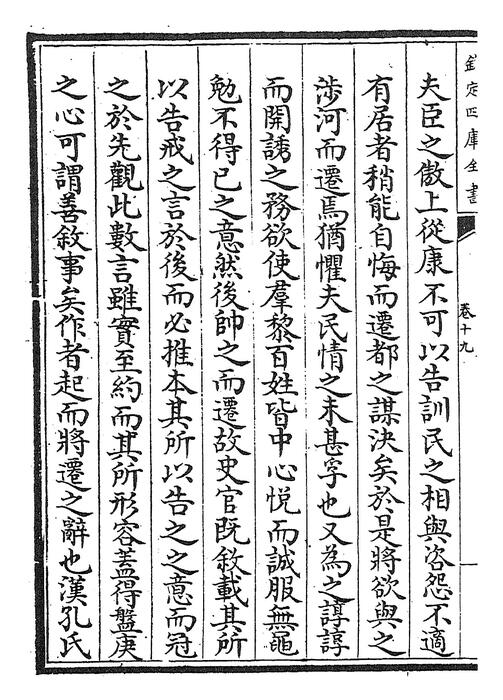 欽定四庫全書
卷十九
夫臣之傲上從康不可以告訓民之相與咨怨不適
有居者稍能自悔而遷都之謀決矣於是將欲與之
渉河而遷焉猶懼夫民情之未甚孚也又為之諄諄
而開誘之務欲使羣黎百姓皆中心悦而誠服無黽
勉不得已之意然後帥之而遷故史官既敘載其所
以告戒之言於後而必推本其所以告之之意而冠
之於先觀此數言雖實至約而其所形容葢得盤庚
之心可謂善敘事矣作者起而將遷之辭也漢孔氏